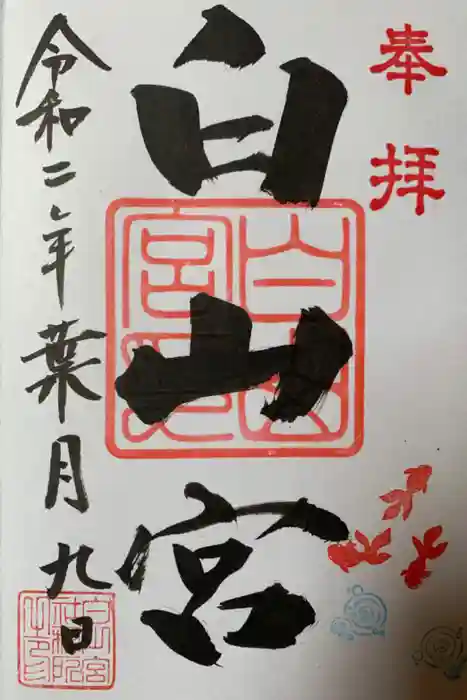 奉拝
白山宮
令和二年葉月九日
白山宮印